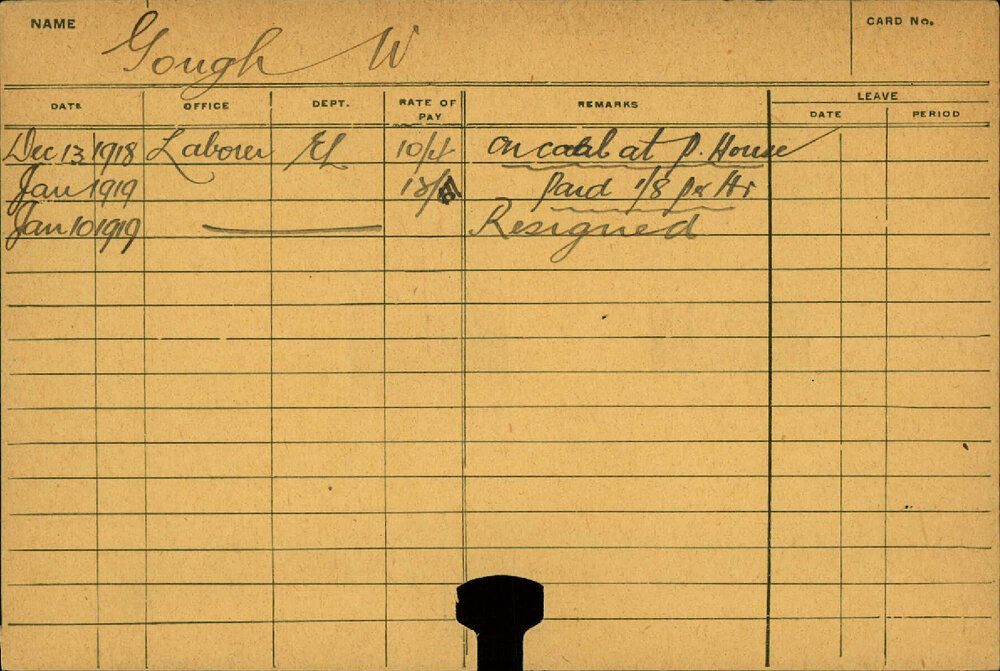 NAME Gough W CARD No.
DATE OFFICE DEPT. RATE OF PAY REMARKS LEAVE
DATE PERIOD
Dec 13 1918 Laborer EL 10/4 On coal at P. House
Jan 1919 Paid 1/8 per Hr
Jan 10 1919 Resigned